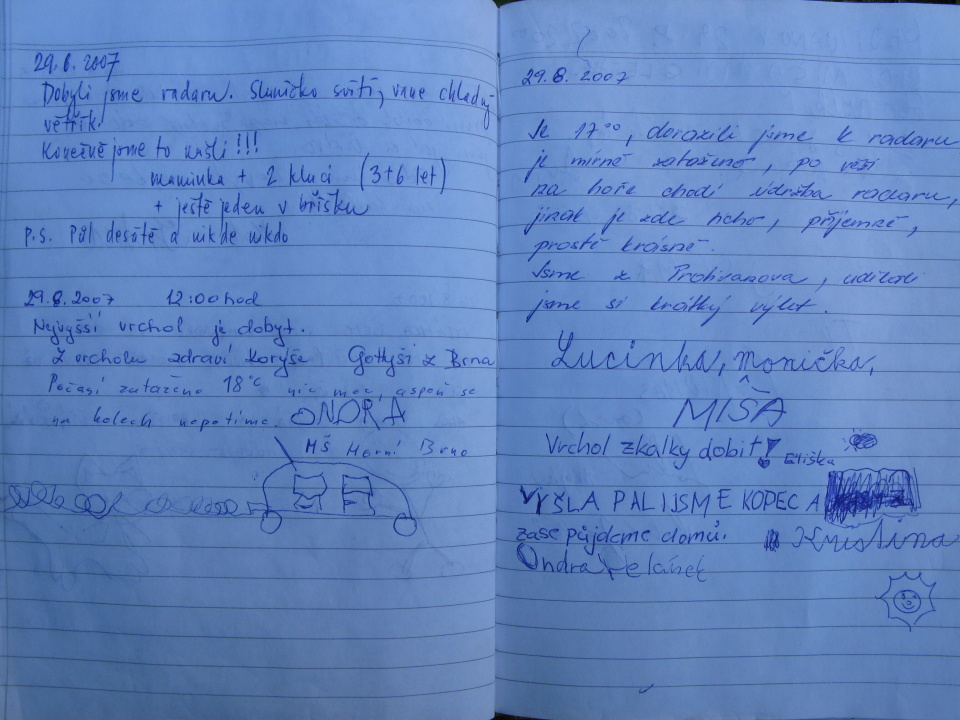 29.6.2007
Dobyli jsme radaru. Sluníčko svítí, vane chladný
větřík.
Konečně jsme to našli!!!
maminka + 2 kluci (3+6 let)
+ ještě jeden v bříšku
P.S. Půl desáté a nikde nikdo
29.8.2007 12:00 hod
Nejvyšší vrchol je dobyt.
Z vrcholu zdraví Koryše Gottyši z Brna
Počasí zataženo 18°C nic moc, aspoň se
na kolech nepotíme.
ONDRA
MŠ Horní Brno
29.8.2007
Je 17⁰⁰, dorazili jsme k radaru
je mírně zataženo, po věži
na hoře chodí údržba radaru,
jinak je zde ticho, příjemně,
prostě krásně.
Jsme z Protivanova, udělali
jsme si krátký výlet.
Lucinka, Monička,
MIŠA
Vrchol zkalky dobit!
Eliška
VYŠLA PALIJSME KOPEC A
zase půjdeme domů.
Kristína
Ondra